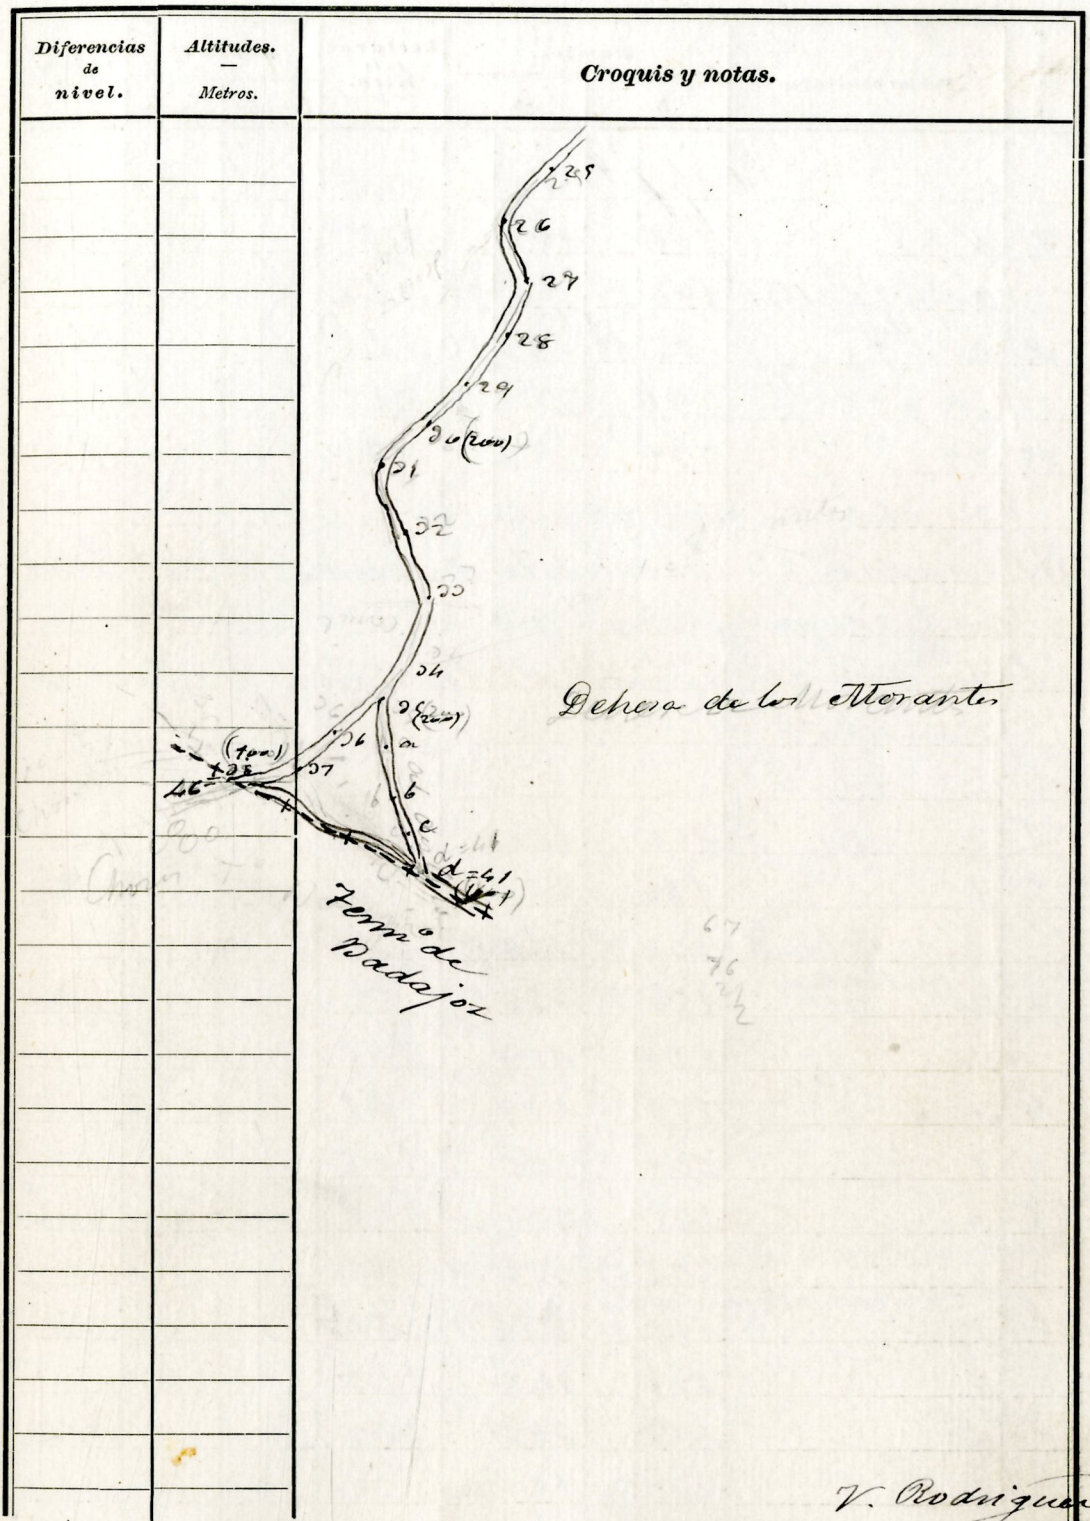 Diferencias
de
nivel.
Altitudes.
Metros.
Croquis y notas.
25
26
27
28
29
30 (200)
31
32
33
34
35
(200)
36
a
(400)
38
37
46
b
c
d=41
Dehesa de los Morantes
Termº de
Badajoz
67
76
V. Rodriguez